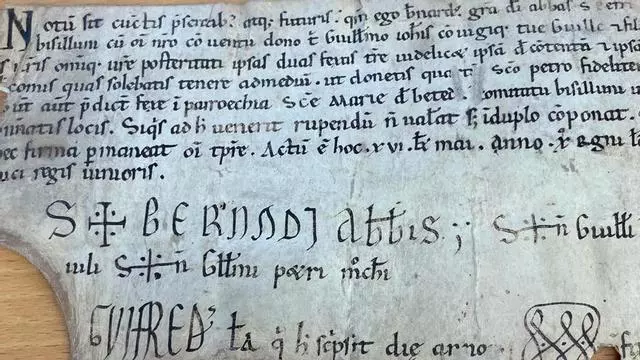 Notū sit cūctis p̄sentib; atq; futuris. qm̄ ego b̄nard; gr̄a dī abbas S
bisillum cū oī nr̄o cōventu dono t̄ Guill̄mo iohis cōiugiq; tue Guill̄e & fil
oīniq; ur̄e posteritati ipsas duas fevas tr̄e videlicȩ ipsā đ cōtenta & ipsā
comis quas solebatis tenere ad mediū. ut donetis qua t̄ Sc̄o petro fidelit
ut aut p̄dict̄ fev̄e ī parroechia Sc̄e marie đ beted. omitatu bisillunu
minatis locis. Siq̄s ad h̄ venerit rupendū n̄ valeat s; ī duplo cōponat.
ec firma p̄maneat oī tp̄re. Actū ē hoc .xvi. kł mai. Anno .x̊. regni
uci regis iunioris.
S✝ BERNADI Abb̄is ; S✝n̄ Guill̄i
iuli S✝n̄ Gll̄mi poncii
GUIFRED; l̄a q̄ h̄ sc̄psit die anno